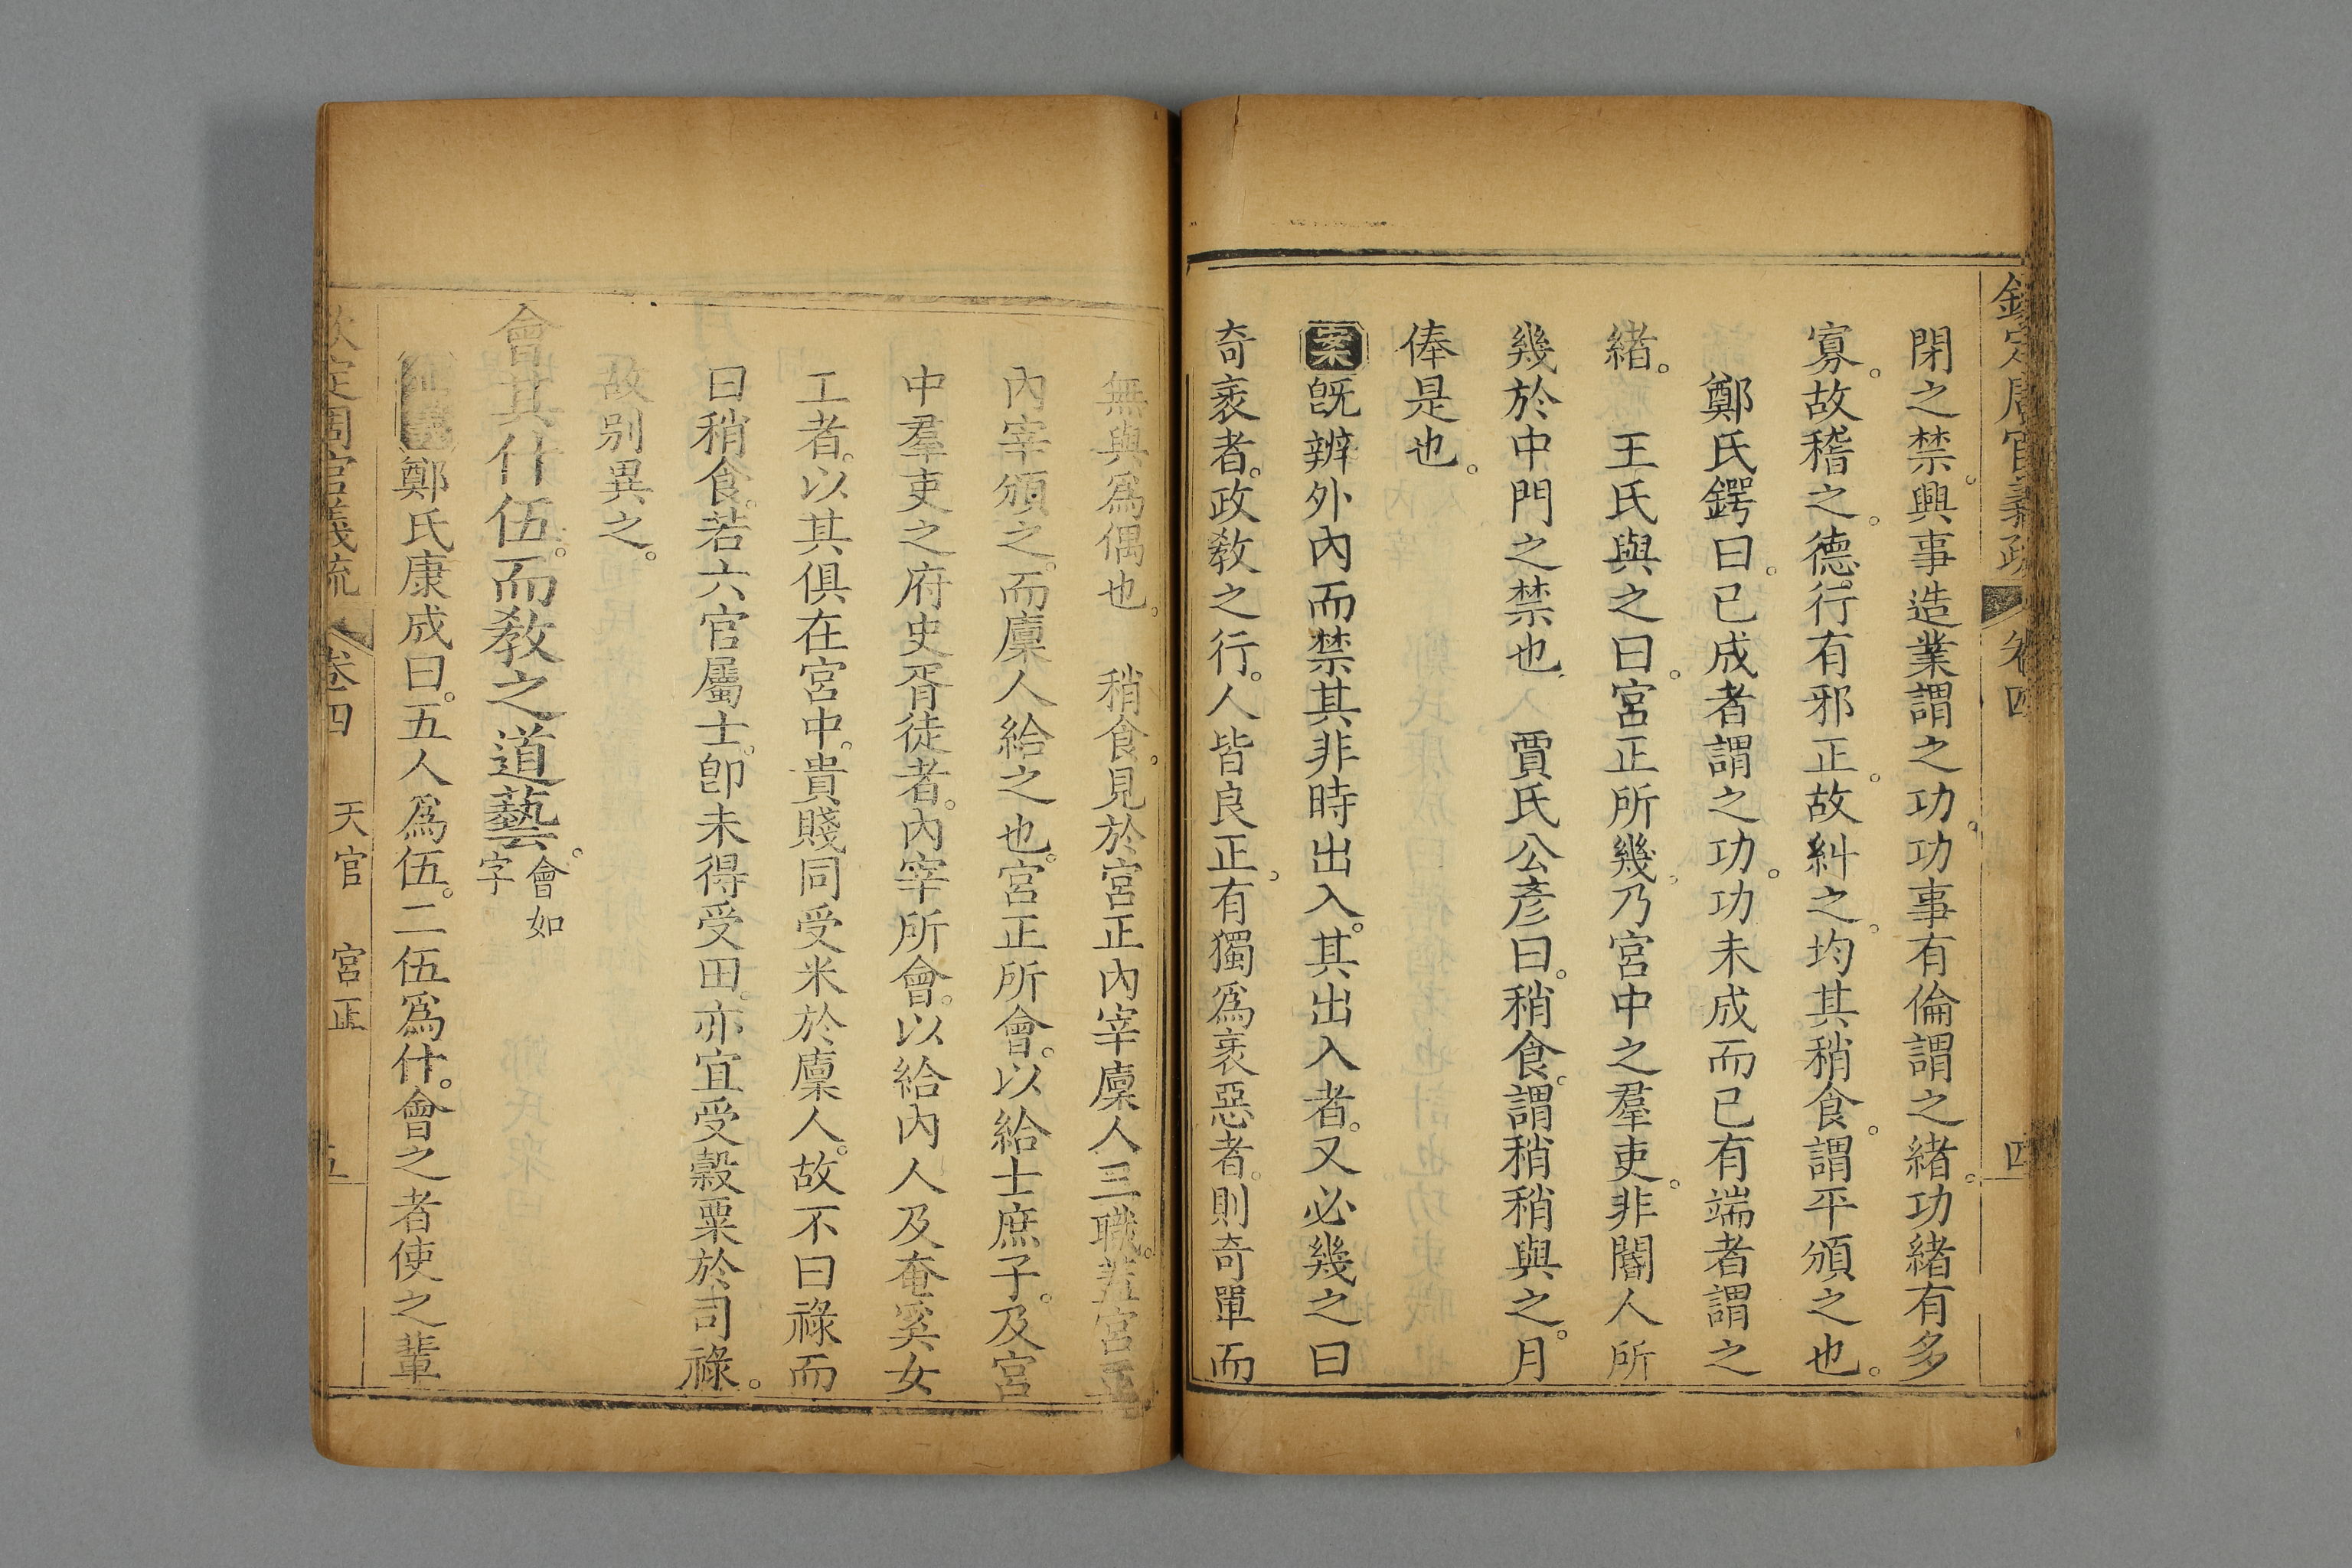 欽定周官義疏 卷四 四
閉之禁。興事造業謂之功。功事有倫謂之緒。功緒有多
寡。故稽之。德行有邪正。故糾之。均其稍食。謂平頒之也。
鄭氏鍔曰。已成者謂之功。功未成而已有端者謂之
緒。 王氏與之曰。宮正所幾。乃宮中之羣吏。非閽人所
幾於中門之禁也。 賈氏公彥曰。稍食。謂稍稍與之。月
俸是也。
案既辨外內而禁其非時出入。其出入者。又必幾之曰
奇衺者。政敎之行。人皆良正。有獨爲衺惡者。則奇單而
無與爲偶也。 稍食。見於宮正內宰廩人三職。蓋宮正
內宰頒之。而廩人給之也。宮正所會。以給士庶子。及宮
中羣吏之府史胥徒者。內宰所會。以給內人及奄奚女
工者。以其俱在宮中。貴賤同受米於廩人。故不曰祿而
曰稍食。若六官屬士。卽未得受田。亦宜受穀粟於司祿。
故別異之。
會其什伍。而敎之道藝。會如
字
鄭氏康成曰。五人爲伍。二伍爲什。會之者使之輩
欽定周官義疏 卷四 天官 宮正 五